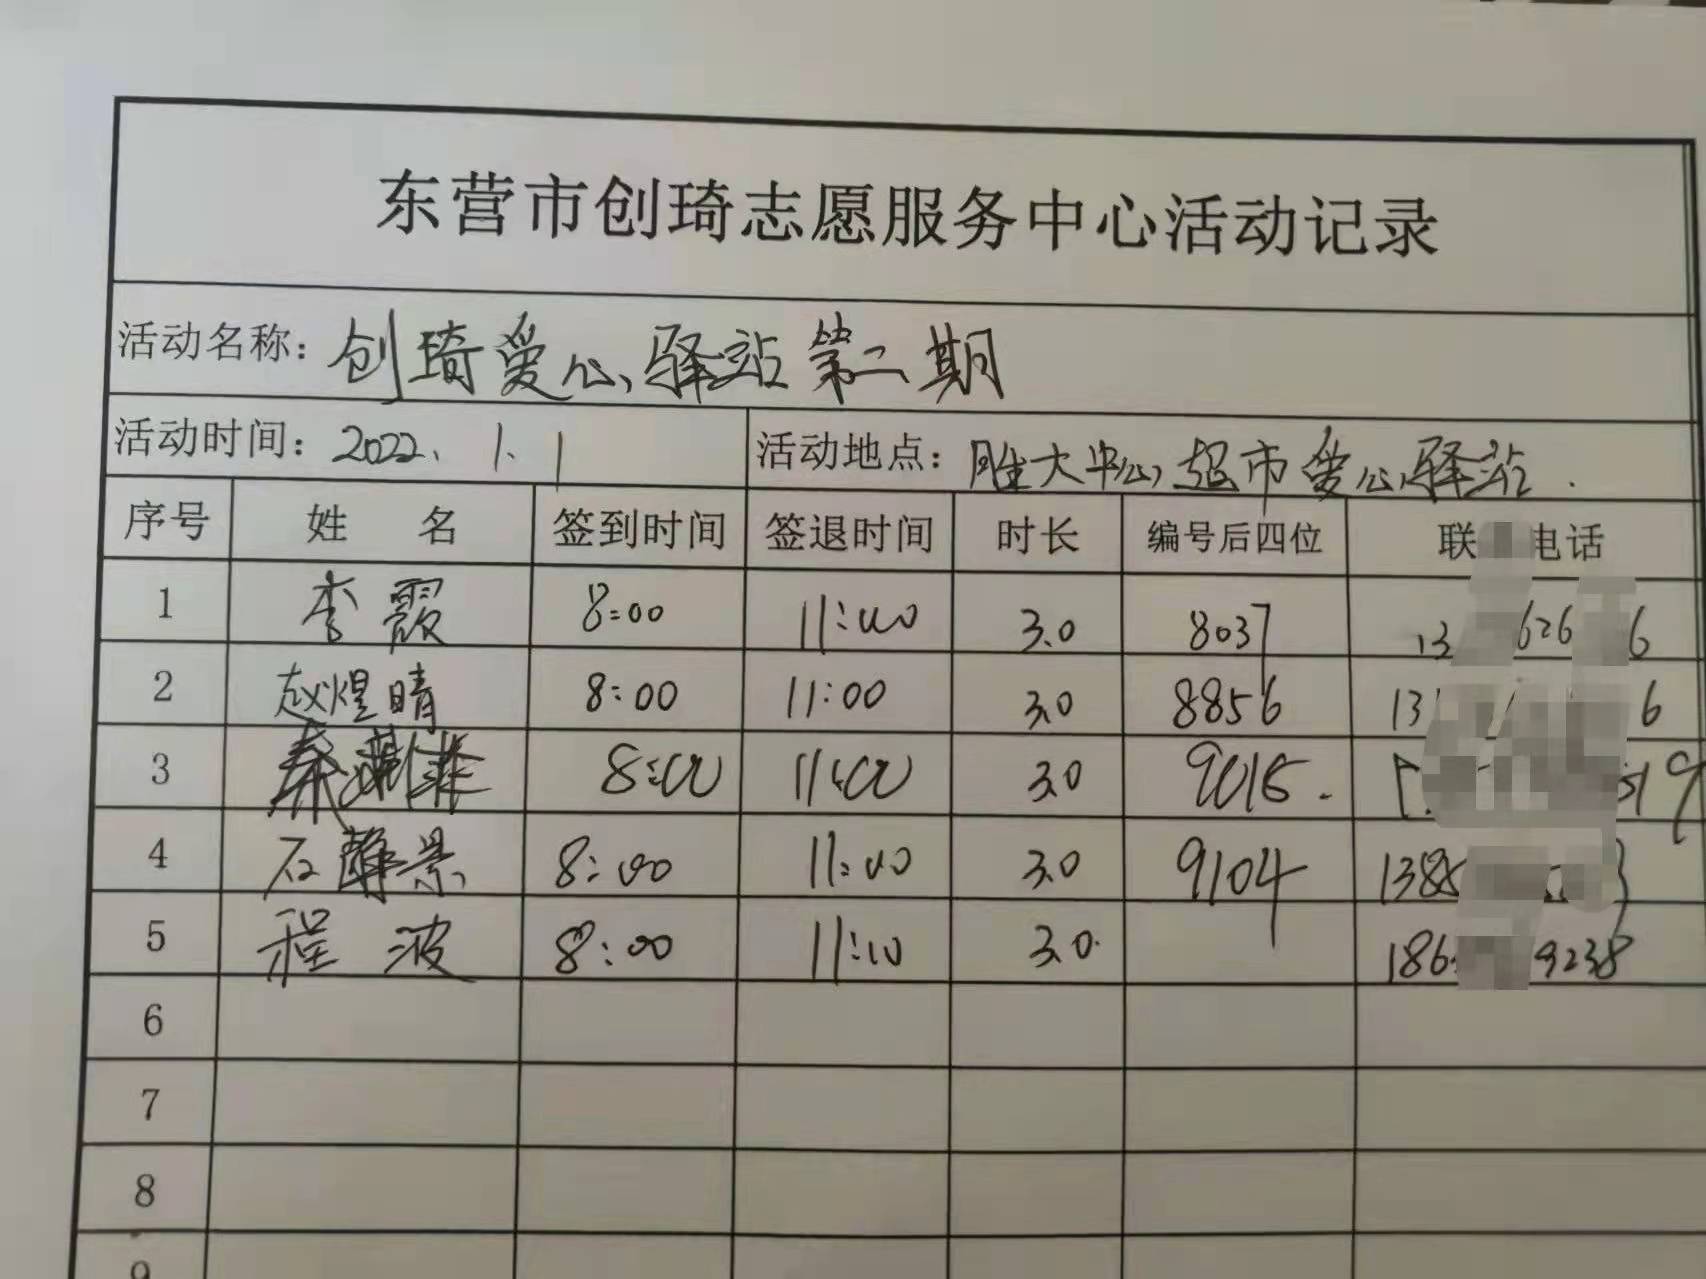 东营市创琦志愿服务中心活动记录
活动名称: 创琦爱心驿站第二期
活动时间: 2022. 1. 1 活动地点: 胜大中心超市爱心驿站.
序号 姓名 签到时间 签退时间 时长 编号后四位 联 电话
1 李霞 8:00 11:00 3.0 8037 13 626 6
2 赵煜晴 8:00 11:00 3.0 8856 13 6
3 秦 8:00 11:00 3.0 9015. 9
4 石静景 8:00 11:00 3.0 9104 1385
5 程波 8:00 11:10 3.0 186 9238
6
7
8
9